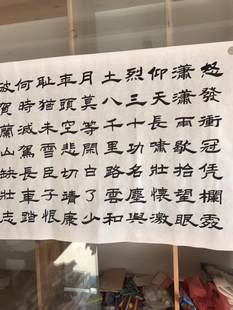 怒發衝冠凭欄處
瀟瀟雨歇抬望眼
仰天長嘯壯懷激
烈三十功名塵與
土八千里路雲和
月莫等閑白了少
年頭空悲切靖康
耻猶未雪臣子恨
何時滅駕長車踏
破賀蘭山缺壯志